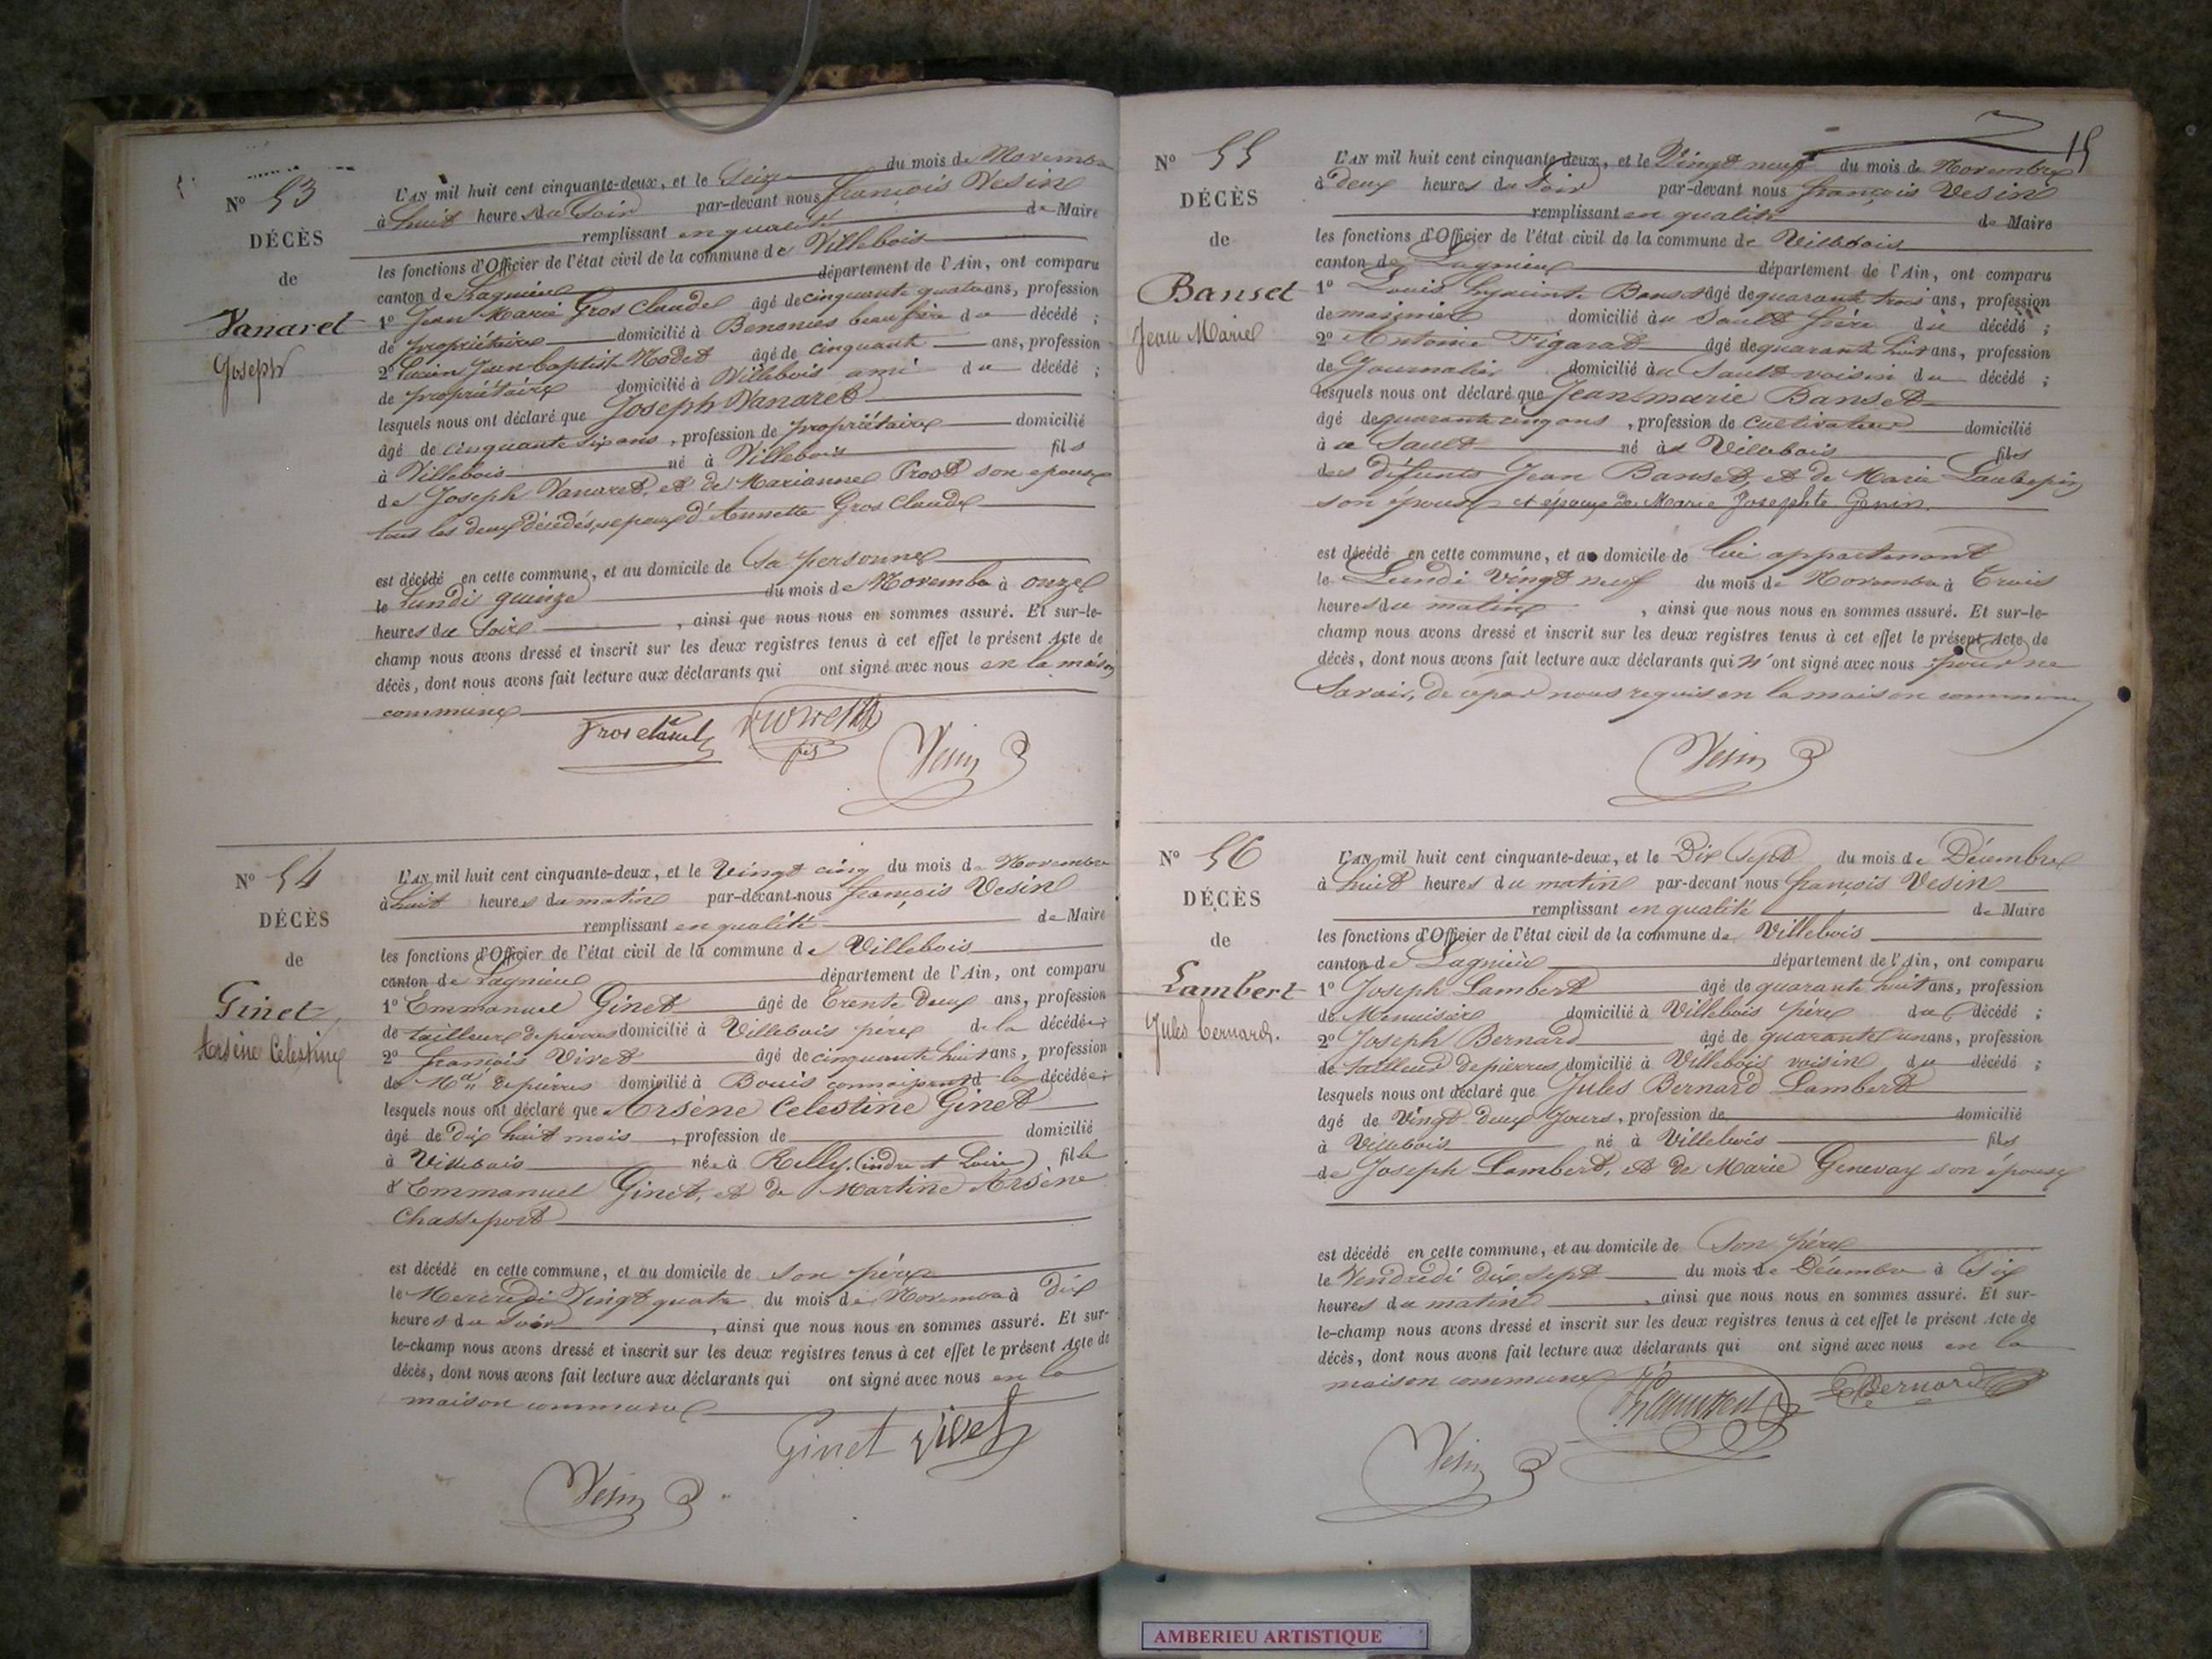 N° 53
DÉCÈS
de
Vanaret
Joseph
L'AN mil huit cent cinquante-deux, et le Seize du mois de Novembre
à huit heures du Soir par-devant nous françois Vesin
remplissant en qualité de Maire
les fonctions d'Officier de l'état civil de la commune de Villebois
canton de Lagnieu département de l'Ain, ont comparu
1° Jean Marie Gros Claude âgé de cinquante quatre ans, profession
de propriétaire domicilié à Benonces beau frère du décédé ;
2° Lucien Jean baptiste Modet âgé de cinquante ans, profession
de propriétaire domicilié à Villebois ami du décédé ;
lesquels nous ont déclaré que Joseph Vanaret
âgé de cinquante six ans, profession de propriétaire domicilié
à Villebois né à Villebois fils
de Joseph Vanaret, et de Marianne Prost son epouse
tous les deux décédés, epoux d'Annette Gros Claude
est décédé en cette commune, et au domicile de Sa personne
le Lundi quinze du mois de Novembre à onze
heures du Soir, ainsi que nous nous en sommes assuré. Et sur-le-
champ nous avons dressé et inscrit sur les deux registres tenus à cet effet le présent Acte de
décès, dont nous avons fait lecture aux déclarants qui ont signé avec nous en la maison
commune
Vesin
N° 54
DÉCÈS
de
Ginet
Arsène Celestine
L'AN mil huit cent cinquante-deux, et le Vingt cinq du mois de Novembre
à huit heures du matin par-devant-nous françois Vesin
remplissant en qualité de Maire
les fonctions d'Officier de l'état civil de la commune de Villebois
canton de Lagnieu département de l'Ain, ont comparu
1° Emmanuel Ginet âgé de Trente Deux ans, profession
de tailleur de pierres domicilié à Villebois père de la décédée ;
2° françois Vivet âgé de cinquante huit ans, profession
de Md de pierres domicilié à Bouis connaissant la décédée ;
lesquels nous ont déclaré que Arsène Celestine Ginet
âgé de dix huit mois, profession de domicilié
à Villebois née à Rilly (indre et Loire) fille
d'Emmanuel Ginet, et de Martine Arsène
Chasseport
est décédé en cette commune, et au domicile de son père
le Mercredi Vingt quatre du mois de Novembre à Dix
heures du Soir, ainsi que nous nous en sommes assuré. Et sur-
le-champ nous avons dressé et inscrit sur les deux registres tenus à cet effet le présent Acte de
décès, dont nous avons fait lecture aux déclarants qui ont signé avec nous en la
maison commune
Ginet Vivet
Vesin
15
N° 55
DÉCÈS
de
Banset
Jean Marie
L'AN mil huit cent cinquante-deux, et le Vingt neuf du mois de Novembre
à deux heures du Soir par-devant nous françois Vesin
remplissant en qualité de Maire
les fonctions d'Officier de l'état civil de la commune de Villebois
canton de Lagnieu département de l'Ain, ont comparu
1° Louis hyacinte Banset âgé de quarante trois ans, profession
de marinier domicilié au Sault frère du décédé ;
2° Antoine Figarat âgé de quarante huit ans, profession
de Journalier domicilié au Sault voisin du décédé ;
lesquels nous ont déclaré que Jean marie Banset
âgé de quarante cinq ans, profession de cultivateur domicilié
à a Sault né à Villebois fils
des défunts Jean Banset, et de Marie Laubepin
son épouse et époux de Marie Josephte Genin
est décédé en cette commune, et au domicile de lui appartenant
le Lundi vingt neuf du mois de Novembre à Trois
heures du matin, ainsi que nous nous en sommes assuré. Et sur-le-
champ nous avons dressé et inscrit sur les deux registres tenus à cet effet le présent Acte de
décès, dont nous avons fait lecture aux déclarants qui n'ont signé avec nous pour ne
Savoir, de ce par nous requis en la maison commune
Vesin
N° 56
DÉCÈS
de
Lambert
Jules bernard.
L'AN mil huit cent cinquante-deux, et le Dix Sept du mois de Décembre
à huit heures du matin par-devant nous françois Vesin
remplissant en qualité de Maire
les fonctions d'Officier de l'état civil de la commune de Villebois
canton de Lagnieu département de l'Ain, ont comparu
1° Joseph Lambert âgé de quarante huit ans, profession
de Menuisier domicilié à Villebois père du décédé ;
2° Joseph Bernard âgé de quarante un ans, profession
de tailleur de pierres domicilié à Villebois voisin du décédé ;
lesquels nous ont déclaré que Jules Bernard Lambert
âgé de Vingt deux Jours, profession de domicilié
à Villebois né à Villebois fils
de Joseph Lambert, et de Marie Genevay son épouse
est décédé en cette commune, et au domicile de Son père
le Vendredi dix sept du mois de Décembre à Six
heures du matin, ainsi que nous nous en sommes assuré. Et sur-
le-champ nous avons dressé et inscrit sur les deux registres tenus à cet effet le présent Acte de
décès, dont nous avons fait lecture aux déclarants qui ont signé avec nous en la
maison commune
Bernard
Vesin
AMBERIEU ARTISTIQUE